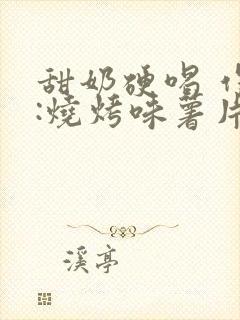 甜奶硬唱
:燒烤味薯片
溪亭